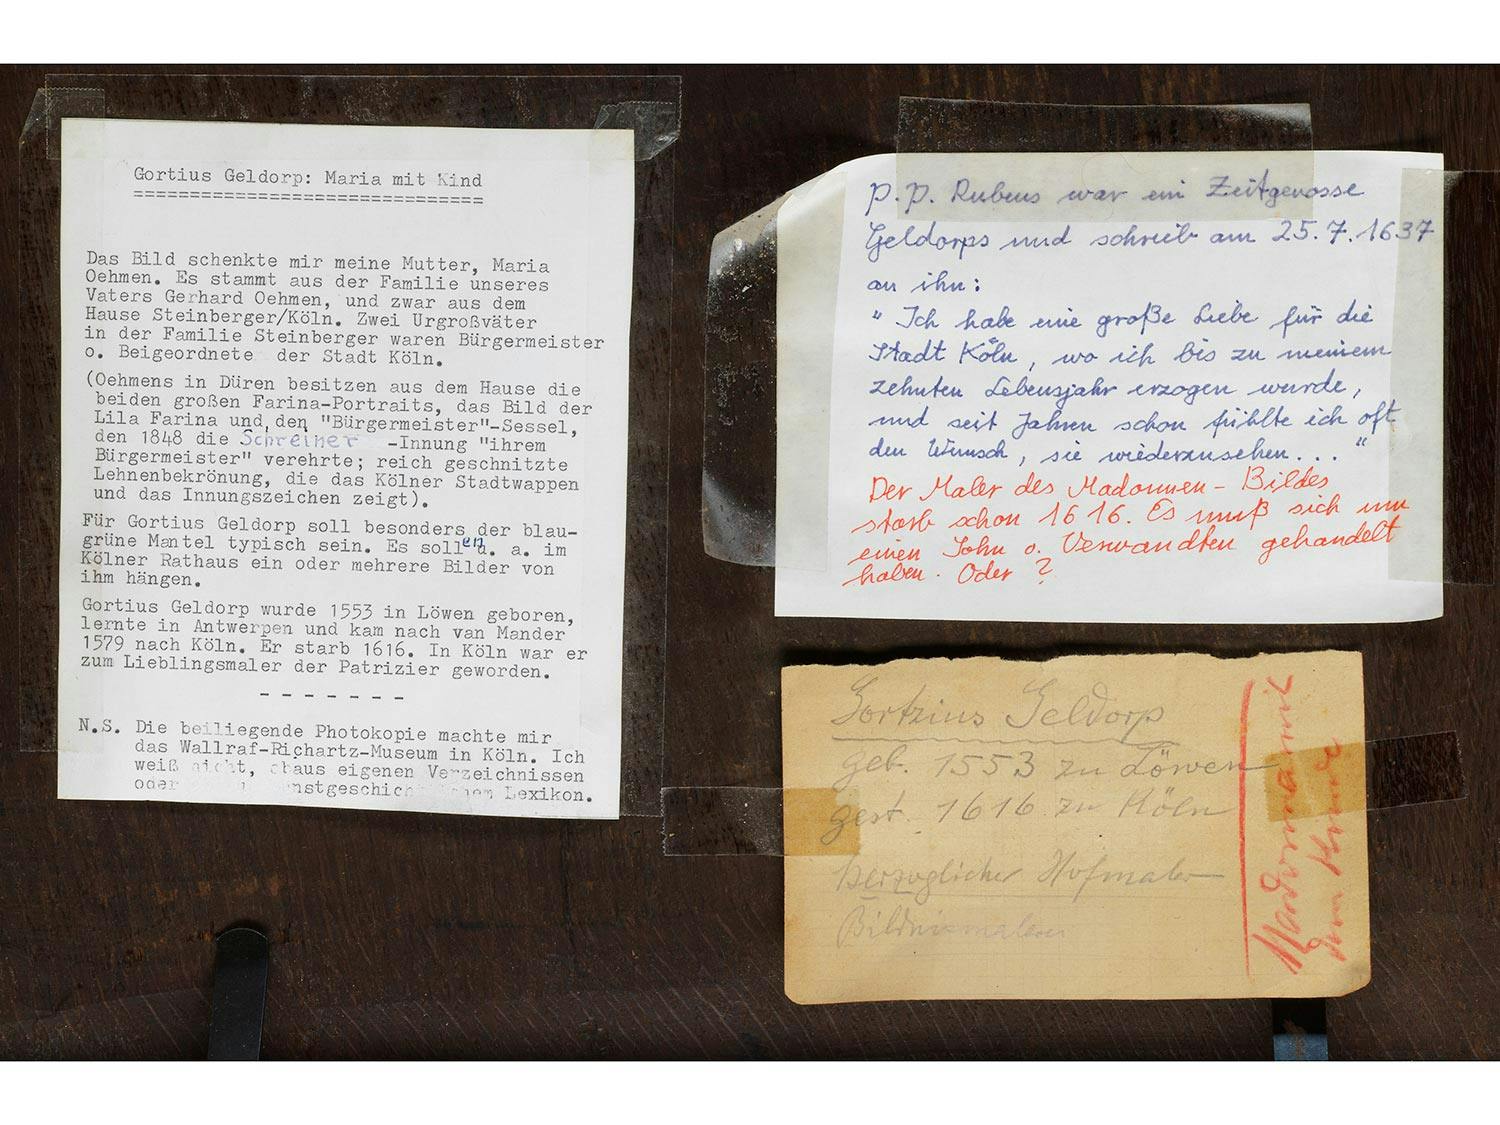 Gortius Geldorp: Maria mit Kind
==============================
Das Bild schenkte mir meine Mutter, Maria
Oehmen. Es stammt aus der Familie unseres
Vaters Gerhard Oehmen, und zwar aus dem
Hause Steinberger/Köln. Zwei Urgroßväter
in der Familie Steinberger waren Bürgermeister
o. Beigeordnete der Stadt Köln.
(Oehmens in Düren besitzen aus dem Hause die
beiden großen Farina-Portraits, das Bild der
Lila Farina und den "Bürgermeister"-Sessel,
den 1848 die Schreiner -Innung "ihrem
Bürgermeister" verehrte; reich geschnitzte
Lehnenbekrönung, die das Kölner Stadtwappen
und das Innungszeichen zeigt).
Für Gortius Geldorp soll besonders der blau-
grüne Mantel typisch sein. Es sollen u. a. im
Kölner Rathaus ein oder mehrere Bilder von
ihm hängen.
Gortius Geldorp wurde 1553 in Löwen geboren,
lernte in Antwerpen und kam nach van Mander
1579 nach Köln. Er starb 1616. In Köln war er
zum Lieblingsmaler der Patrizier geworden.
- - - - - - -
N.S. Die beiliegende Photokopie machte mir
das Wallraf-Richartz-Museum in Köln. Ich
weiß nicht, obaus eigenen Verzeichnissen
oder Lexikon.
P. P. Rubens war ein Zeitgenosse
Geldorps und schrieb am 25.7.1637
an ihn:
"Ich habe eine große Liebe für die
Stadt Köln, wo ich bis zu meinem
zehnten Lebensjahr erzogen wurde,
und seit Jahren schon fühlte ich oft
den Wunsch, sie wiederzusehen..."
Der Maler des Madonnen-Bildes
starb schon 1616. Es muß sich um
einen Sohn o. Verwandten gehandelt
haben. Oder?
Gortzius Geldorp
geb. 1553 zu Löwen
gest. 1616 zu Köln
herzoglicher Hofmaler
Bildnismaler
Madonna mit
dem Kinde